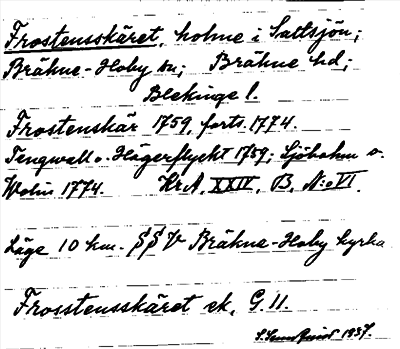 Frostensskäret, holme i Saltsjön;
Bräkne-Hoby sn; Bräkne hd;
Blekinge l.
Frostenskär 1759, forts. 1774.
Tengwall o. Hägerflyckt 1759; Sjöbohm o.
Wolin 1774. Kr A, XXIV, B, N:o VI.
Läge 10 km. SSV Bräkne-Hoby kyrka
Frosstensskäret ek. G. 11.
1937.